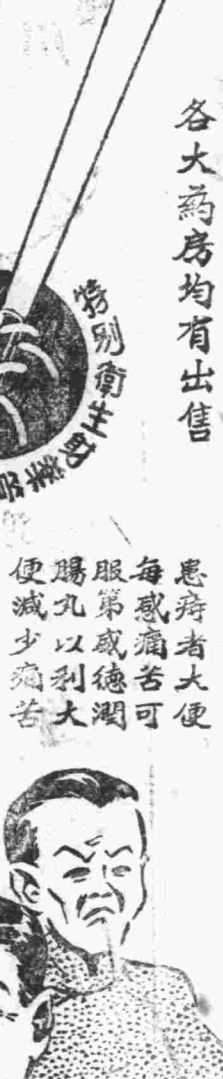 各大葯房均有出售
特別衛生
患痔者大便
每感痛苦可
服第威德潤
腸丸以利大
便減少痛苦